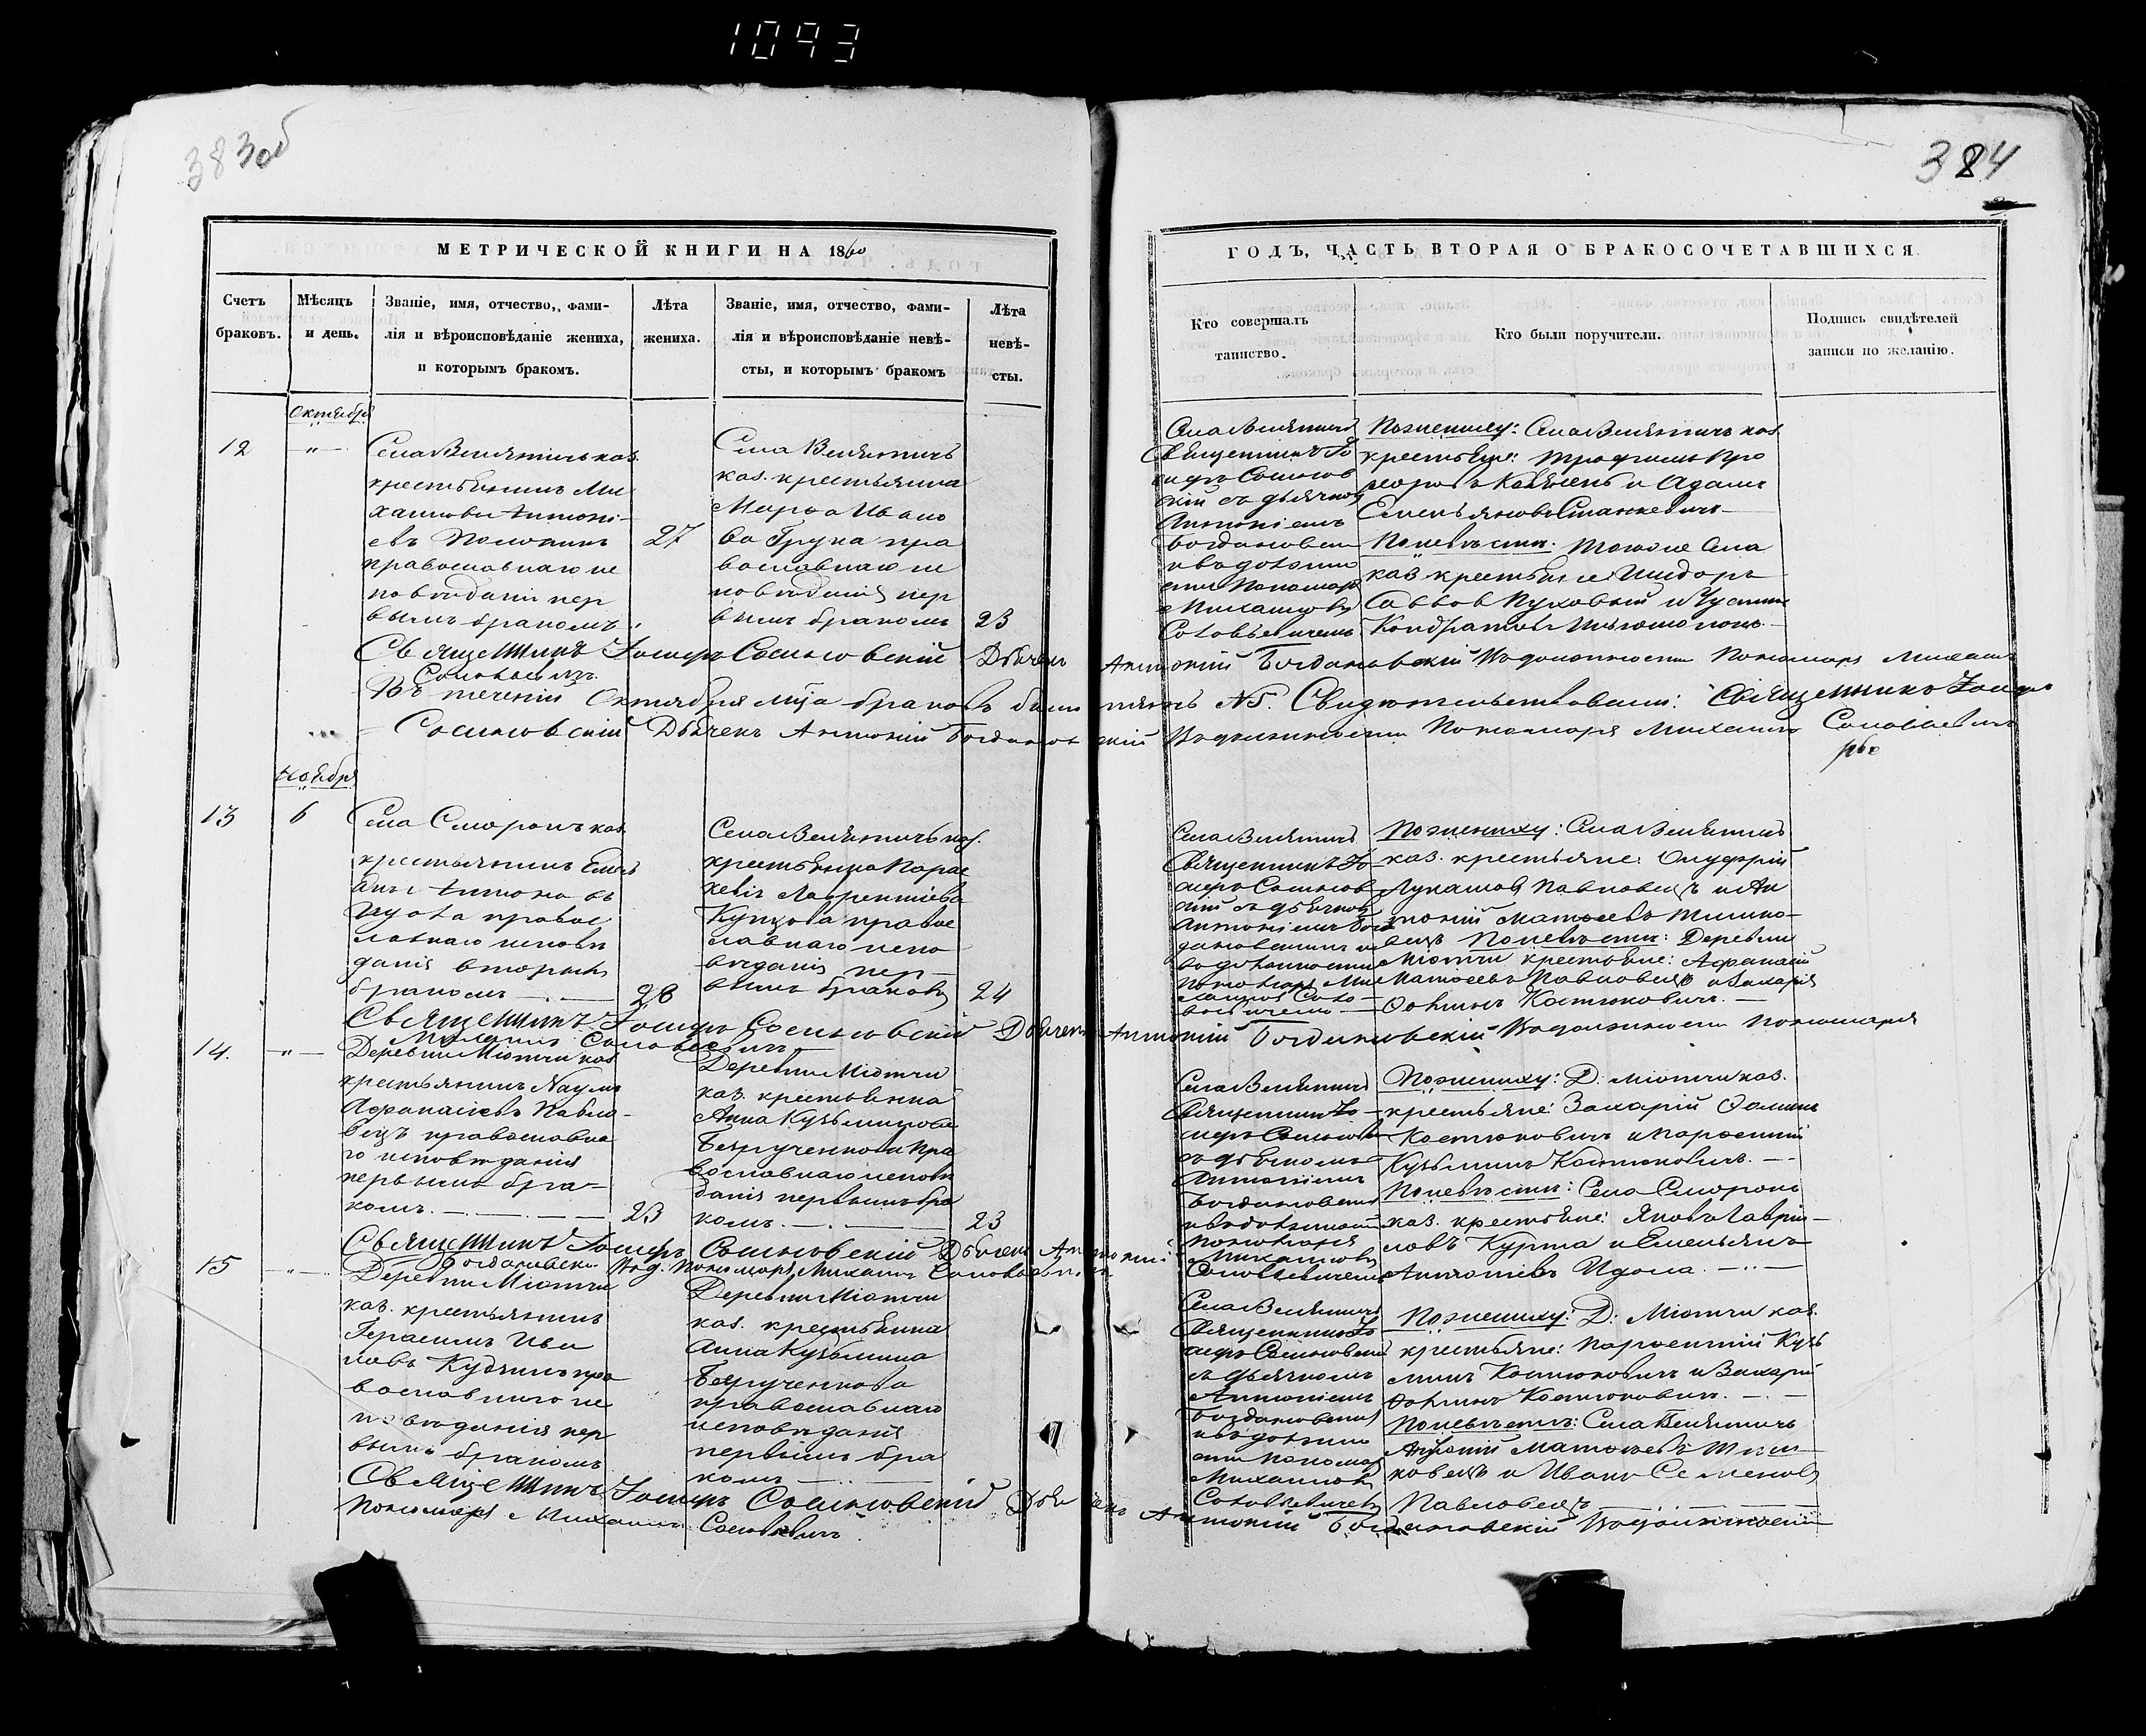 1093
383об
384
МЕТРИЧЕСКОЙ КНИГИ НА 1860
ГОДЪ, ЧАСТЬ ВТОРАЯ О БРАКОСОЧЕТАВШИХСЯ
Счетъ
браковъ.
Мѣсяцъ
и день.
Званіе, имя, отчество, фами-
лія и вѣроисповѣданіе жениха,
и которымъ бракомъ.
Лѣта
жениха.
Званіе, имя, отчество, фами-
лія и вѣроисповѣданіе невѣ-
сты, и которымъ бракомъ
Лѣта
невѣ-
сты.
Кто совершалъ
таинство.
Кто были поручители.
Подпись свидѣтелей
записи по желанію.
Октября
12
Села Велятичъ каз.
крестьянинъ Ми
хаилъ Антоні-
евъ
православнаго ис
повѣданія пер
вымъ бракомъ
27
Села Велятичъ
каз. крестьянка
Марѳа Ивано
ва пра
вославнаго ис
повѣданія пер
вымъ бракомъ
23
Села Велятичъ
Священникъ Іо
сифъ Сосиновскій
съ дьячкомъ
Антоніемъ
Богдановскимъ
и въ должно
сти Пономаря
Михаиломъ
Соловьевичемъ
По женихѣ: Села Велятичъ каз.
крестьяне: Трофимъ Про
и Адамъ
Емельяновъ Станкевичъ
По невѣстѣ: Тогоже Села
каз. крестьяне: Исидоръ
Саввовъ Пуховый и Іустинъ
Кондратовъ
Священникъ Іосифъ Сосиновскій Дьячекъ Антоній Богдановскій Въ должности Пономаря Михаилъ
Соловьевичъ
Въ теченіи Октября м-ца браковъ было пять №5. Свидѣтельствовали: Священникъ Іосифъ
Сосиновскій Дьячекъ Антоній Богдановскій Въ должности Пономаря Михаилъ Соловьевичъ
Ноября
13
6
Села Сморокъ каз.
крестьянинъ Емель
янъ Антоновъ
Идола правос
лавнаго исповѣ
данія вторымъ
бракомъ
28
Села Велятичъ каз.
крестьянка Парас
кевія Лаврентіева
православнаго испо
вѣданія пер
вымъ бракомъ
24
Села Велятичъ
Священникъ Іо
сифъ Сосиновс
кій съ дьячкомъ
Антоніемъ Бог
дановскимъ и
въ должности
Пономаря Ми
хаиломъ Соло
вьевичемъ
По жениху: Села Велятичъ
каз. крестьяне: Онуфрій
Лукашовъ Павловецъ и Ан
тоній Матѳеевъ Тимко-
вецъ По невѣстѣ: Деревни
Міотчи крестьяне: Аѳанасій
Матѳеевъ Павловецъ и Захарія
Ѳоминъ Костюковичъ
Священникъ Іосифъ Сосиновскій Дьячекъ Антоній Богдановскій Въ должности Пономаря
Михаилъ Соловьевичъ
14.
Деревни Міотчи каз.
крестьянинъ Наумъ
Аѳанасіевъ Павло-
вецъ православна
го исповѣданія
первымъ бра-
комъ
23
Деревни Міотчи
каз. крестьянка
Анна Кузьминова
Безрученкова пра
вославнаго исповѣ
данія первымъ бра
комъ
23
Села Велятичъ
Священникъ Іо-
сифъ Сосиновскій
съ дьячкомъ
Антоніемъ
Богдановскимъ
и въ должности
Пономаря
Михаиломъ
Соловьевичемъ
По жениху: Д. Міотчи каз.
крестьяне: Захарій Ѳоминъ
Костюковичъ и Парѳентій
Кузьминъ Костюковичъ
По невѣстѣ: Села Сморокъ
каз. крестьяне: Яковъ Гаври-
ловъ Курта и Емельянъ
Антоновъ Идола
Священникъ Іосифъ Сосиновскій Дьячекъ Антоній
Богдановскій Въ д. Пономаря Михаилъ Соловьевичъ
15
Деревни Міотчи
каз. крестьянинъ
Герасимъ Ива
новъ пра
вославнаго ис
повѣданія пер
вымъ бракомъ
Деревни Міотчи
каз. крестьянка
Анна Кузьмина
Безрученкова
православнаго
исповѣданія
первымъ бра
комъ
Села Велятичъ
Священникъ Іо
сифъ Сосиновскій
съ дьячкомъ
Антоніемъ
Богдановскимъ
и въ должно
сти Пономаря
Михаиломъ
Соловьевичемъ
По жениху: Д. Міотчи каз.
крестьяне: Парѳентій Кузь
минъ Костюковичъ и Захарій
Ѳоминъ Костюковичъ
По невѣстѣ: Села Велятичъ
Антоній Матѳеевъ Тим-
ковецъ и Иванъ Семеновъ
Павловецъ
Священникъ Іосифъ Сосиновскій Дьячекъ Антоній Богдановскій Въ должности
Пономаря Михаилъ Соловьевичъ